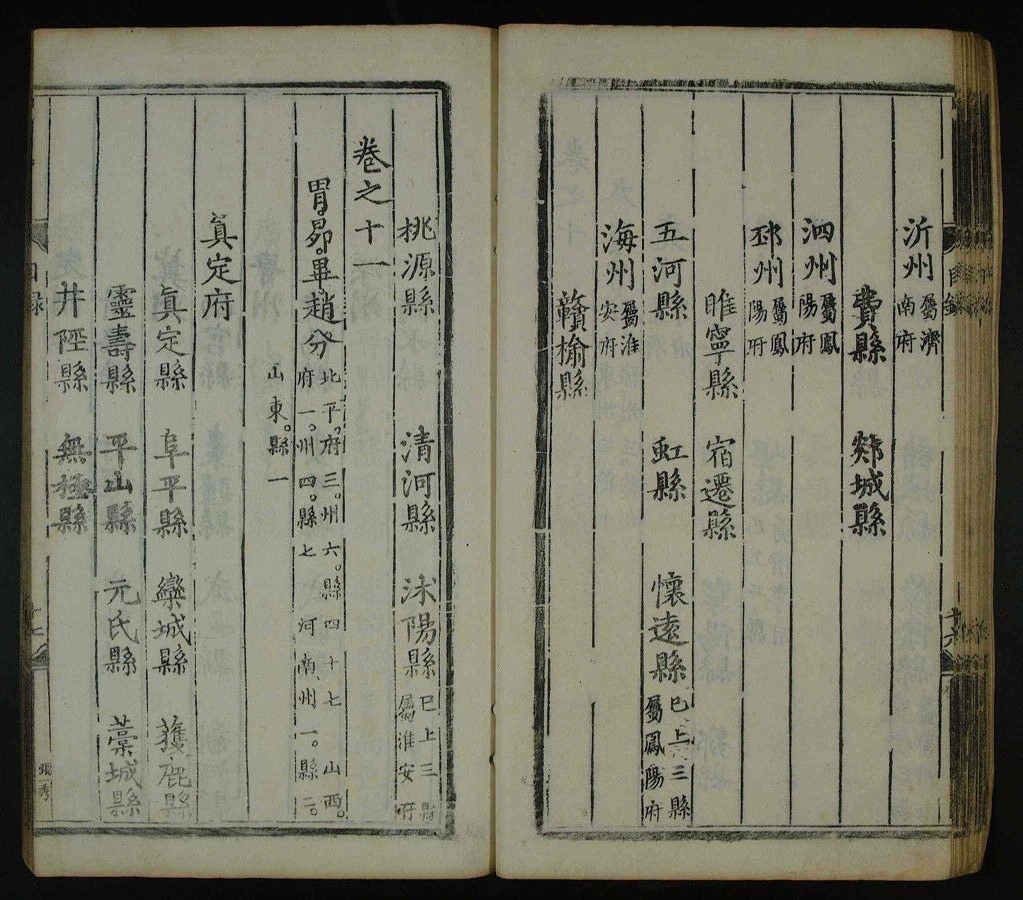 沂州 屬濟南府
費縣 郯城縣
泗州 屬鳳陽府
邳州 屬鳳陽府
睢寧縣 宿遷縣
五河縣 虹縣 懷遠縣 已上三縣屬鳳陽府
海州 屬淮安府
贛榆縣
目錄
桃源縣 清河縣 沭陽縣 已上三縣屬淮安府
卷之十一
胃昴畢趙分 北平府三。州六。縣四十七 山西。府一。州四。縣七 河南州一。縣二。山東。縣一
真定府
真定縣 阜平縣 欒城縣 獲鹿縣
靈壽縣 平山縣 元氏縣 藁城縣
井陘縣 無極縣
目錄
十七